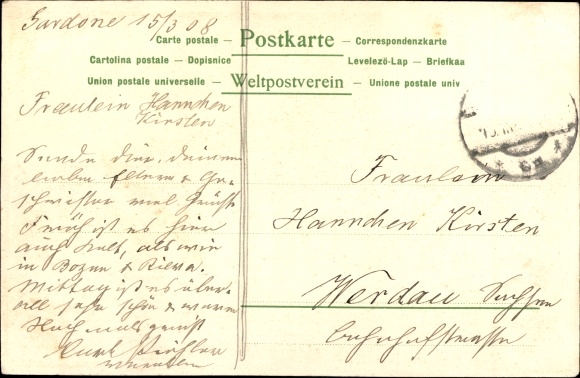 Gardone 15/3 08
Carte postale — Postkarte — Correspondenzkarte
Cartolina postale — Dopisnice
Levelező-Lap — Briefkaa
Union postale universelle — Weltpostverein — Unione postale univ
Fraulein Hannchen
Kirsten
Sende dir, deinen
lieben Eltern & Ge-
schwister viel Grüße
Früh ist es hier
auch kalt, als wie
in Bozen & Riva.
Mittag ist es über-
all sehr schön & warm
Nochmals grüßt
Kurt
Fraulein
Hannchen Kirsten
Werdau Sachsen
Bahnhofstrasse